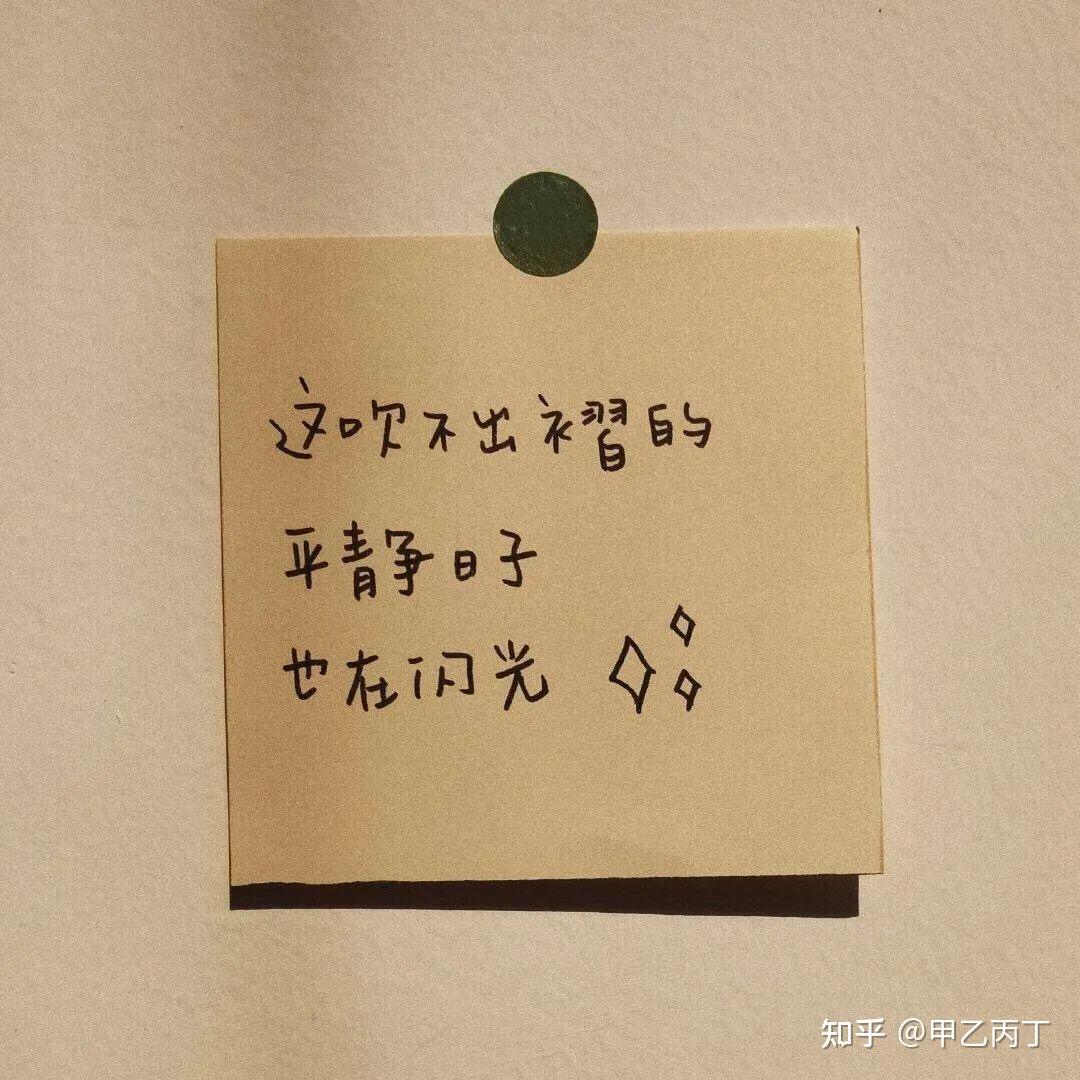 这吹不出褶的
平静日子
也在闪光
知乎 @甲乙丙丁